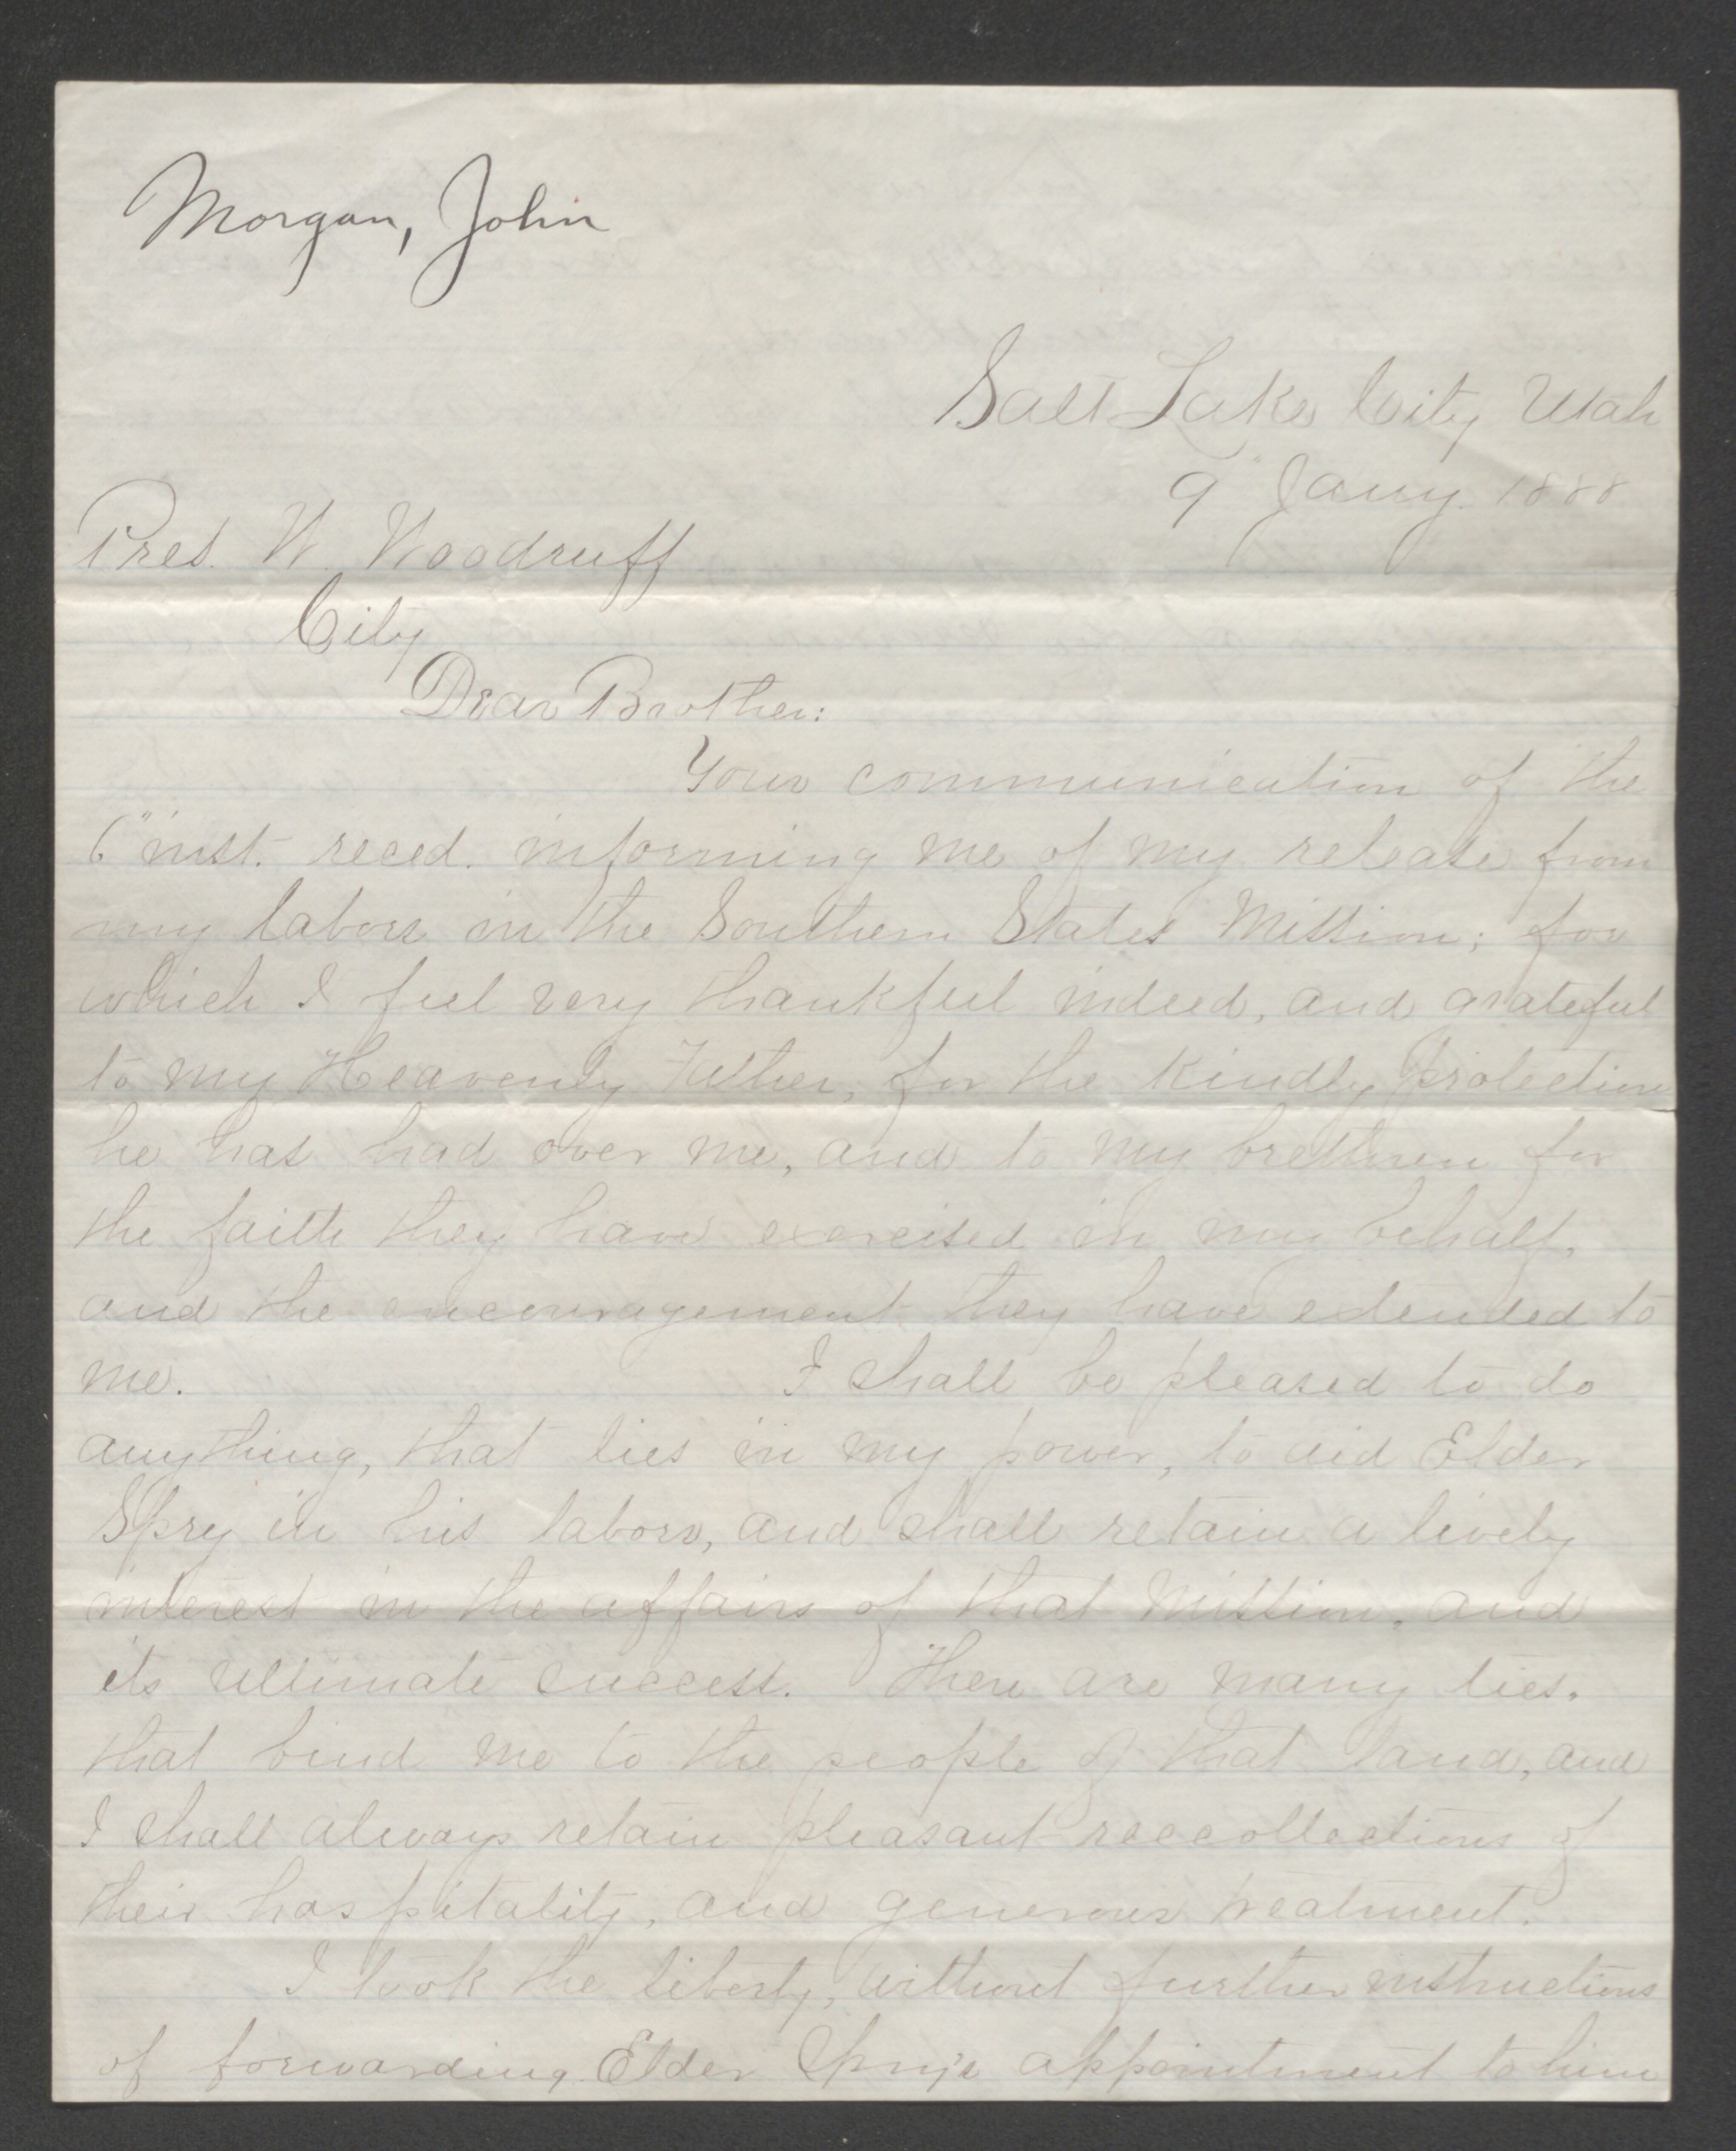 Morgan, John
Salt Lake City Utah
9" Jany. 1888
Pres. W. Woodruff
City
Dear Brother:
Your communication of the
6" inst. reced. informing me of my release from
my labors in the Southern States Mission; for
which I feel very thankful indeed, and grateful
to my Heavenly Father, for the kindly protection
he has had over me, and to my brethren for
the faith they have exercised in my behalf,
and the encouragement they have extended to
me. I shall be pleased to do
anything, that lies in my power, to aid Elder
Spry in his labors, and shall retain a lively
interest in the affairs of that Mission, and
its ultimate success. There are many ties,
that bind me to the people of that land, and
I shall always retain pleasant reccollections of
their hospitality, and generous treatment.
I took the liberty, without further instructions
of forwarding Elder Spry's appointment to him